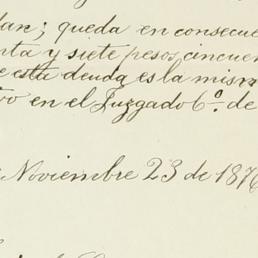 dan; queda en consecue
nta y siete pesos cincuen
e esta deuda es la mism
tro en el Juzgado 6º. de
Noviembre 23 de 187